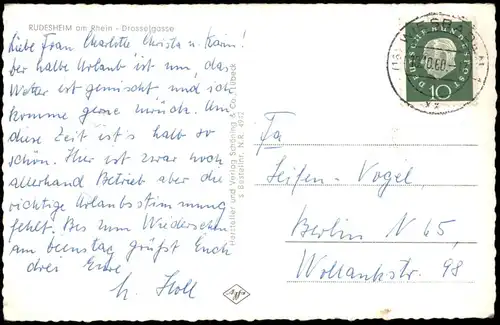 RÜDESHEIM am Rhein - Drosselgasse
Liebe Frau Charlotte, Christa u. Karin!
Der halbe Urlaub ist um, das
Wetter ist gemischt und ich
komme gerne zurück. Um
diese Zeit ist's halb so
schön. Hier ist zwar noch
allerhand Betrieb aber die
richtige Urlaubsstimmung
fehlt. Bis zum Wiedersehen
am grüßt Euch
drei Eure
H. Holl
Hersteller und Verlag Schöning & Co., Lübeck
s Bestellnr. N.R. 4912
DEUTSCHE BUNDESPOST
10
WIESBADEN
.10.60.
Fa
Seifen-Vogel,
Berlin N 65,
Wollankstr. 98